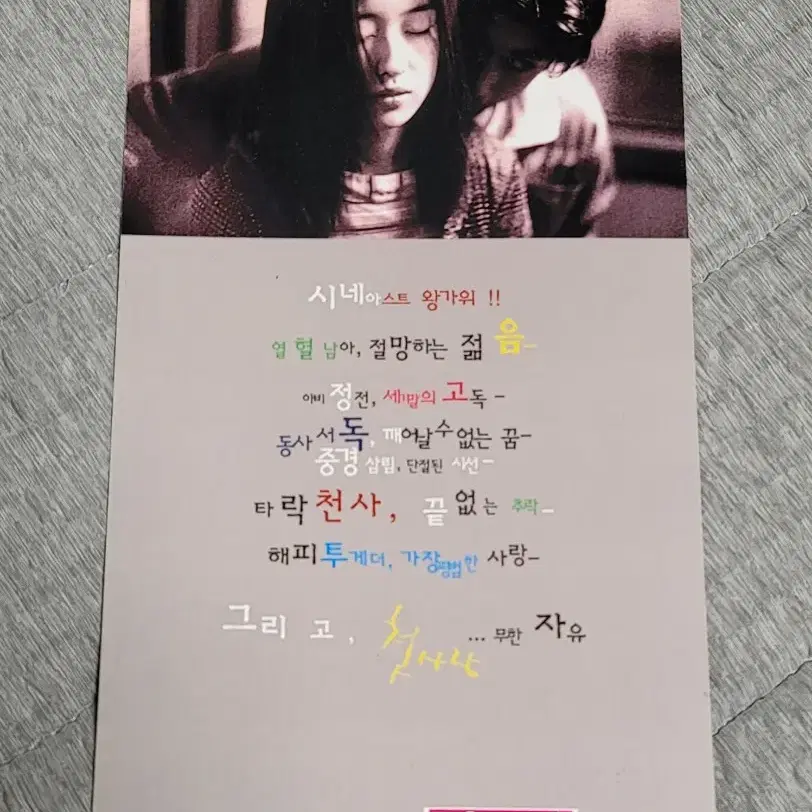 시네아스트 왕가위 !!
열혈남아, 절망하는 젊음-
아비정전, 세기말의 고독-
동사서독, 깨어날 수 없는 꿈-
중경삼림, 단절된 시선-
타락천사, 끝없는 추락-
해피투게더, 가장 평범한 사랑-
그리고, 첫사랑 ... 무한 자유